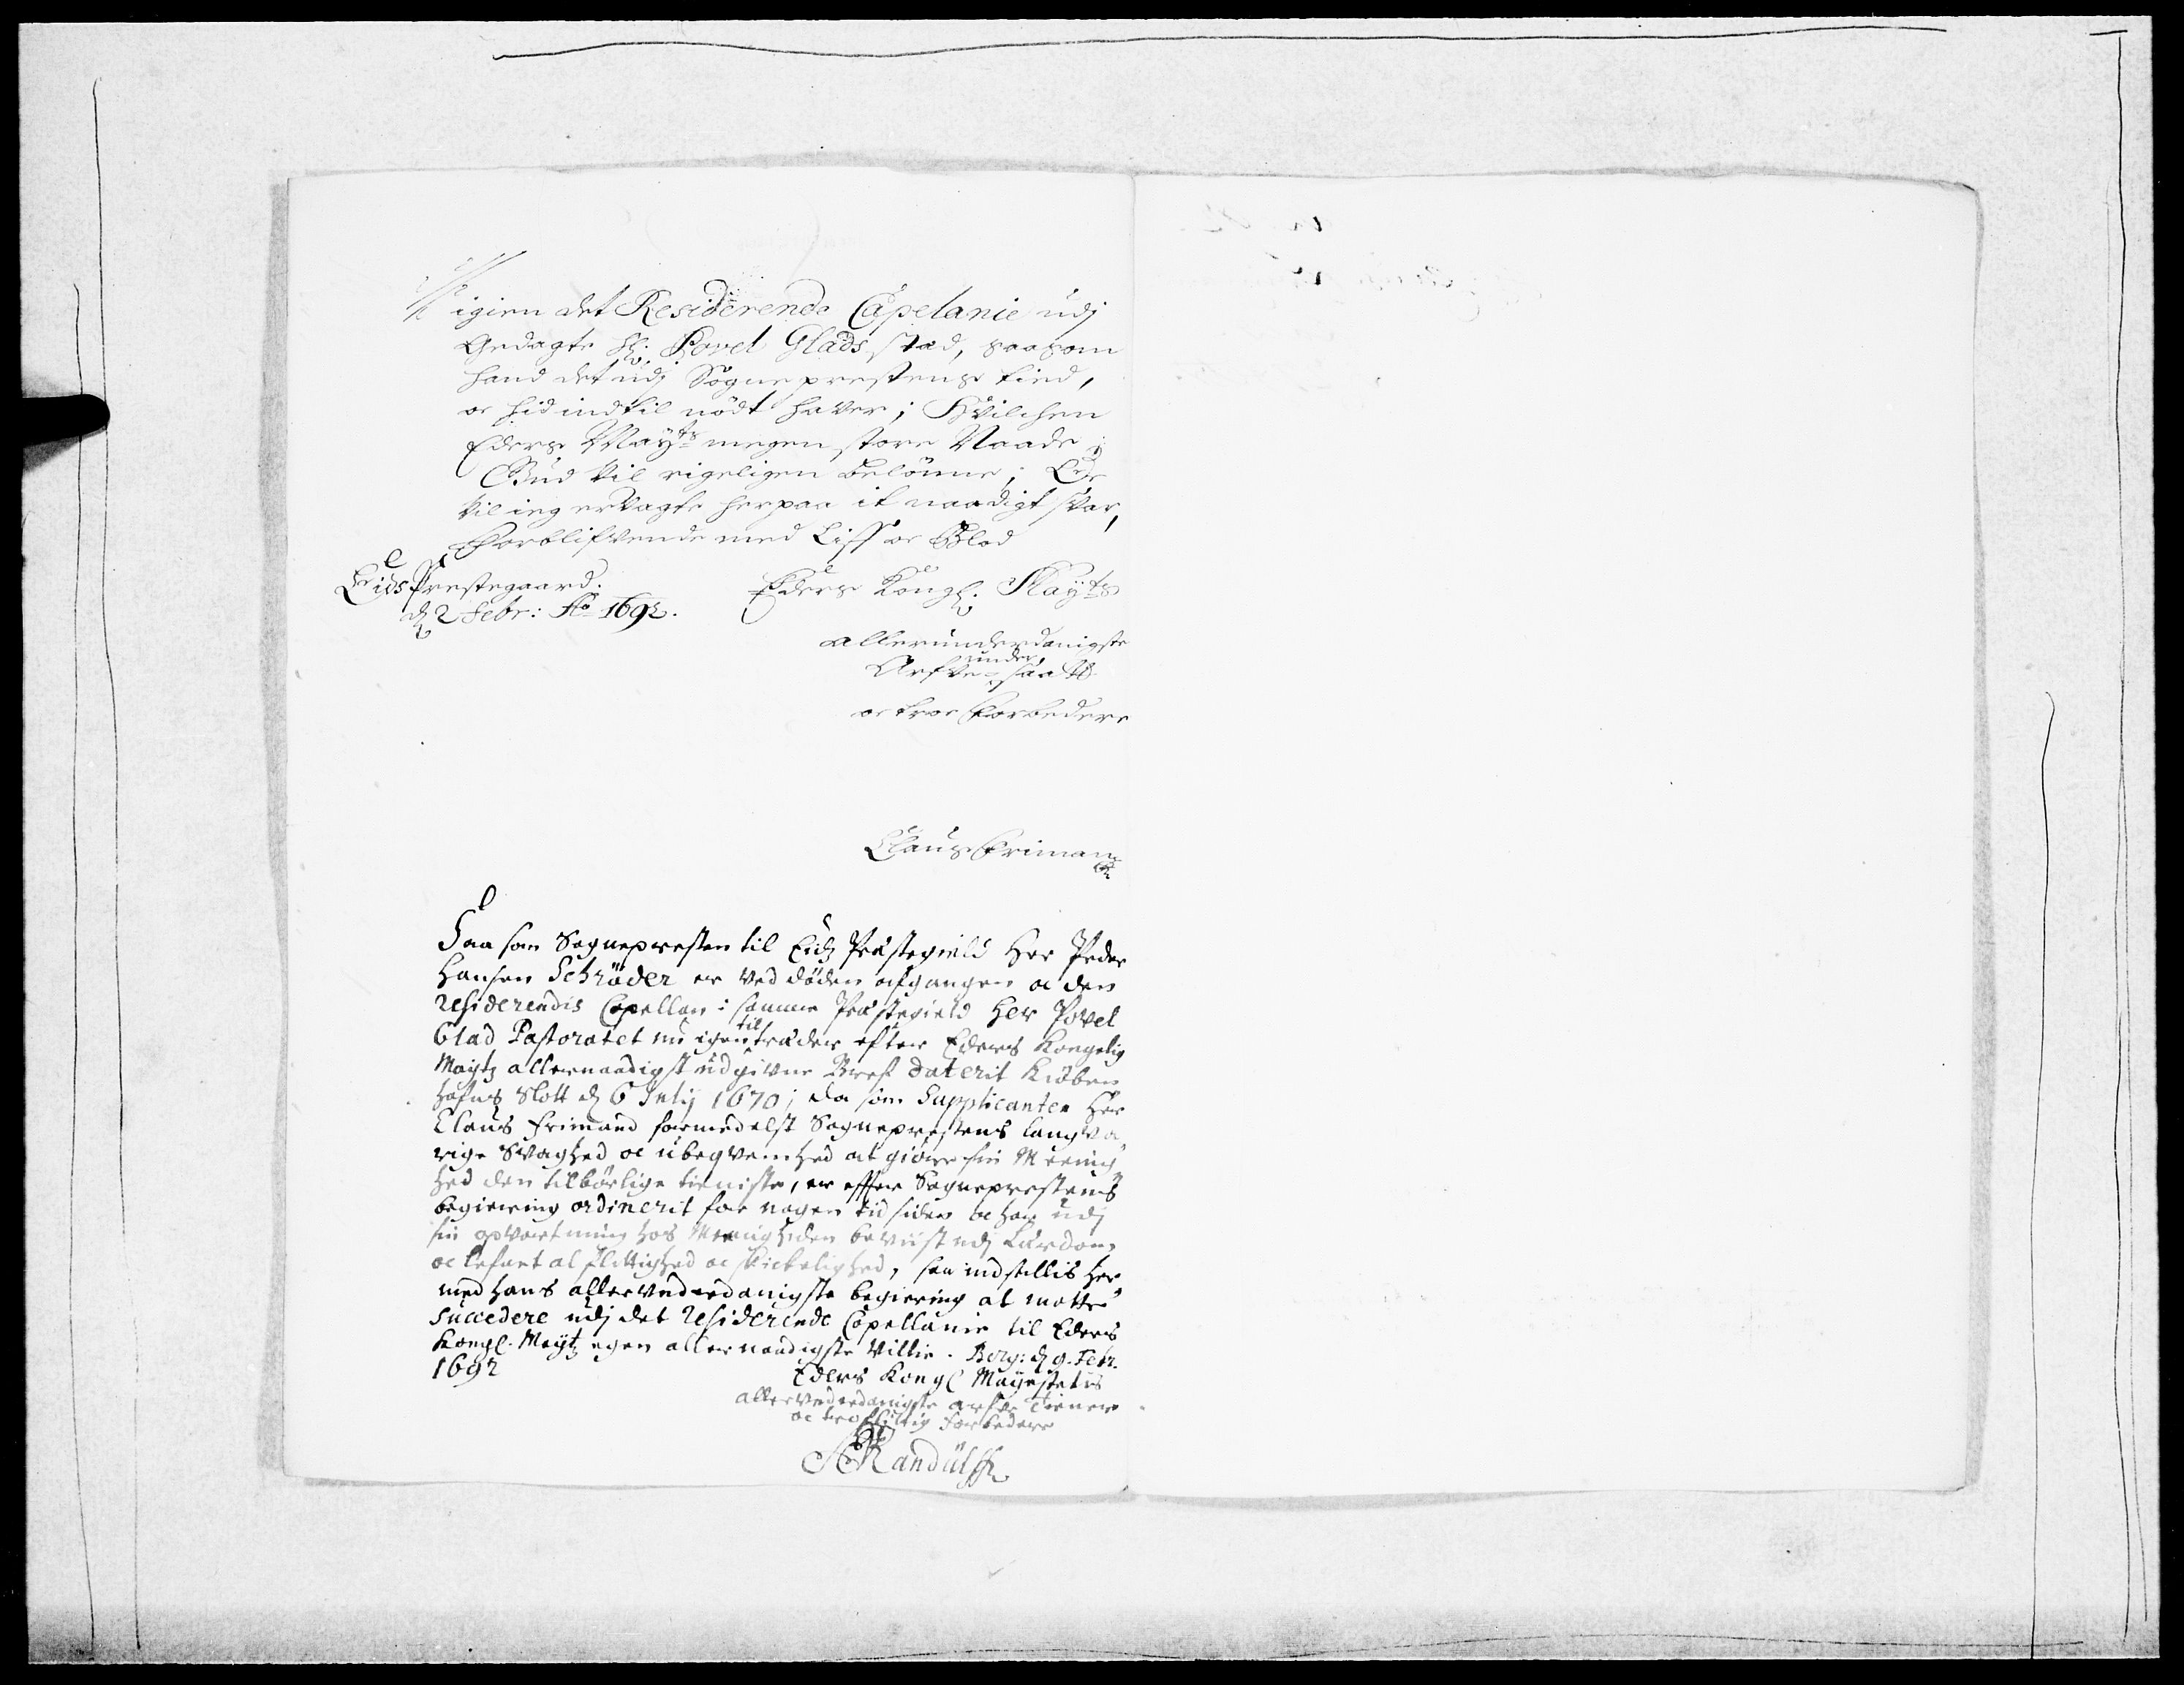 igien det Residerende Capelanie udj
Bedagte Hr: Povel Glads stæd, saasom
hand det udj Sogneprestens tied,
oc hid indtil nödt hafver; Hvilchen
Eders Mayts megen store Naade
Gud vil rigeligen belönne;
vil ieg ervagte herpaa it naadigt svar,
Forblifvende med Liff oc Blod
Eids Prestegaard.
d 2 Febr: Ao 1692.
Eders Kongl. Mayts
allerunderdanigste
Arfve under saatt
oc troe Forbedere
Claus Friman
Saa som Sognepresten til Eidz Præstegield Her Peder
Hansen Schröder er ved döden afgangen oc den
Residerendis Capellan i samme Præstegield Her Povel
Glad Pastoratet nu igen til træder efter Eders Kongelig
Maytz allernaadigst udgivne Bref daterit Kiöben
hafns Slott d 6 Julij 1670; da som Supplicanten Her
Claus Frimand formedelst Sogneprestens langva
rige Svaghed oc ubeqvemhed at giöre sin Meenig
hed den tilbörlige tieniste, er efter Sogneprestens
begiering ordinerit for nogen tid siden oc har udj
sin opvartning hos Menigheden beviist udj Lærdom
oc lefnet al flittighed oc skickelighed, saa indstillis her
med hans allerunderdanigste begiering at motte
succedere udj det Residerende Capellanie til Eders
Kongl. Maytz egen allernaadigste Villie. Berg: d 9. Febr.
1692
Eders Kongl Mayestetis
allerunderdanigste arfve Tienere
oc troeflittig forbedere
Randulff